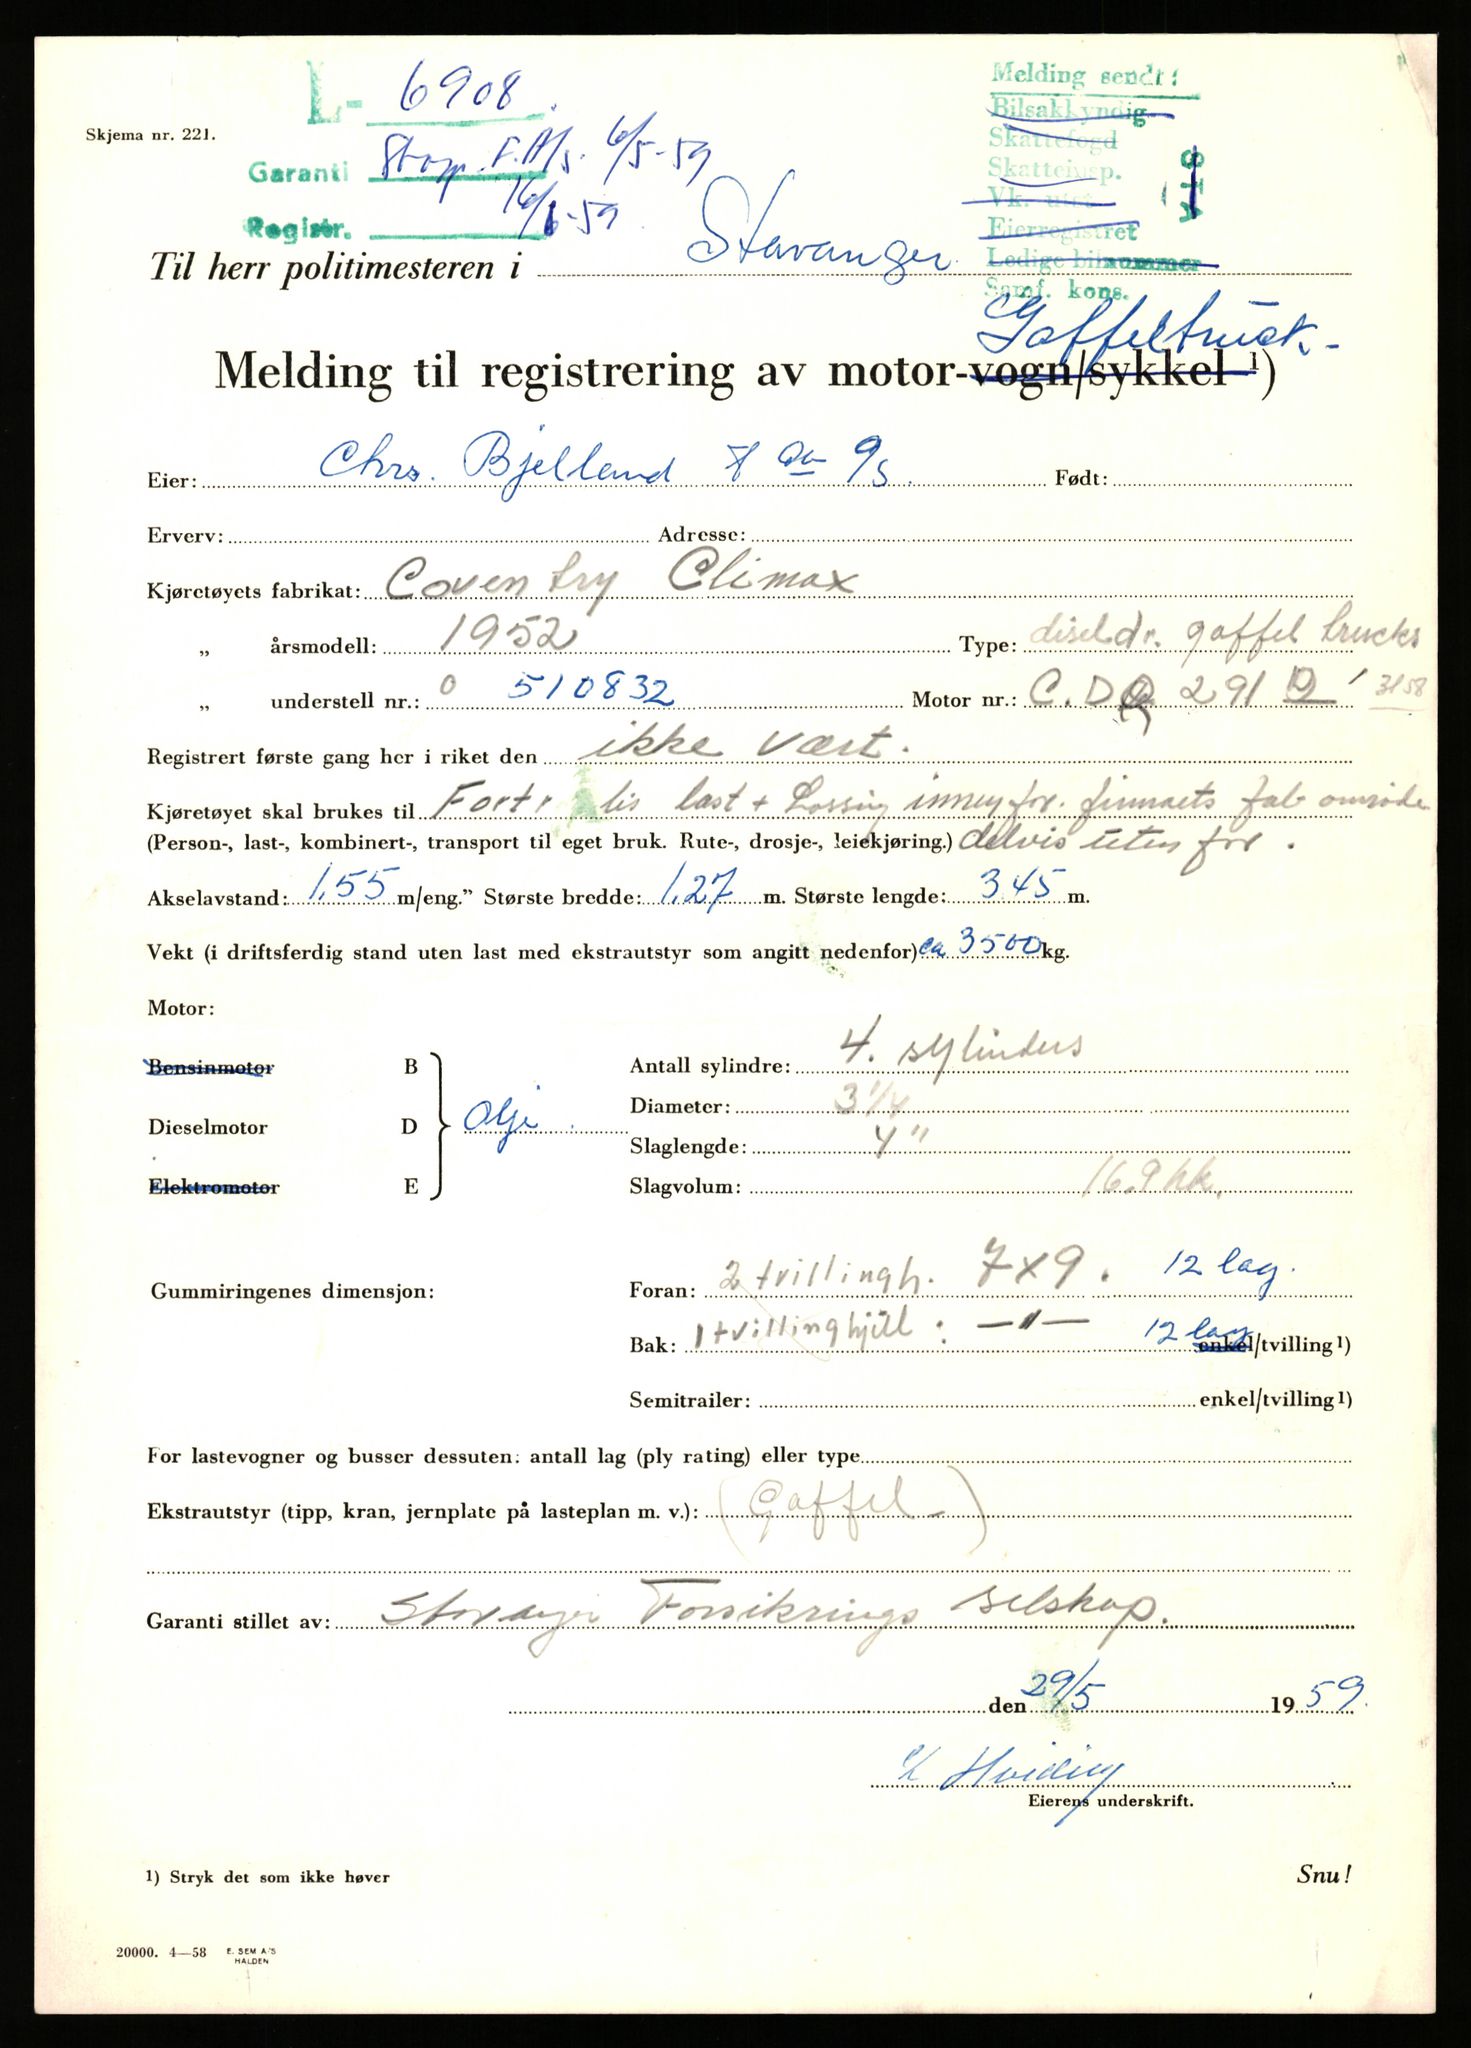 L- 6908.
Melding sendt:
Bilsakkyndig
Skattefogd
Skatteinsp.
Vk. utst.
Eierregistret
Ledige bilnummer
Samf. kons.
STA
Skjema nr. 221.
Garanti Stavgr. F. A/s. 6/5-59
Registr. 16/6-59
Til herr politimesteren i Stavanger.
Gaffeltruck.-
Melding til registrering av motor-vogn/sykkel ¹)
Eier: Chrs. Bjelland & Co A/S. Født:
Erverv: Adresse:
Kjøretøyets fabrikat: Coventry Climax
„ årsmodell: 1952 Type: diseldr. gaffel trucks
„ understell nr.: 0 510832 Motor nr.: C.D 291 D 3158
Registrert første gang her i riket den ikke vært.
Kjøretøyet skal brukes til Fortr lis last + Lossing innenfor. firmaets fab område
(Person-, last-, kombinert-, transport til eget bruk. Rute-, drosje-, leiekjøring.) delvis uten for.
Akselavstand: 1,55 m/eng.” Største bredde: 1,27 m. Største lengde: 3.45 m.
Vekt (i driftsferdig stand uten last med ekstrautstyr som angitt nedenfor) ca 3500 kg.
Motor:
Bensinmotor B
Dieselmotor D
Elektromotor E
Olje.
Antall sylindre: 4. sylinders
Diameter: 3 1/4
Slaglengde: 4"
Slagvolum: 16.9 hk.
Gummiringenes dimensjon: Foran: 2 tvillingh. 7x9. 12 lag.
Bak: 1 tvillinghjül : —"— 12 lag enkel/tvilling ¹)
Semitrailer: enkel/tvilling ¹)
For lastevogner og busser dessuten: antall lag (ply rating) eller type
Ekstrautstyr (tipp, kran, jernplate på lasteplan m. v.): (Gaffel-)
Garanti stillet av: Stavanger Forsikrings selskap.
den 29/5 19 59.
Hviding
Eierens underskrift.
¹) Stryk det som ikke høver
Snu!
20000. 4—58 E. SEM A.'S
HALDEN